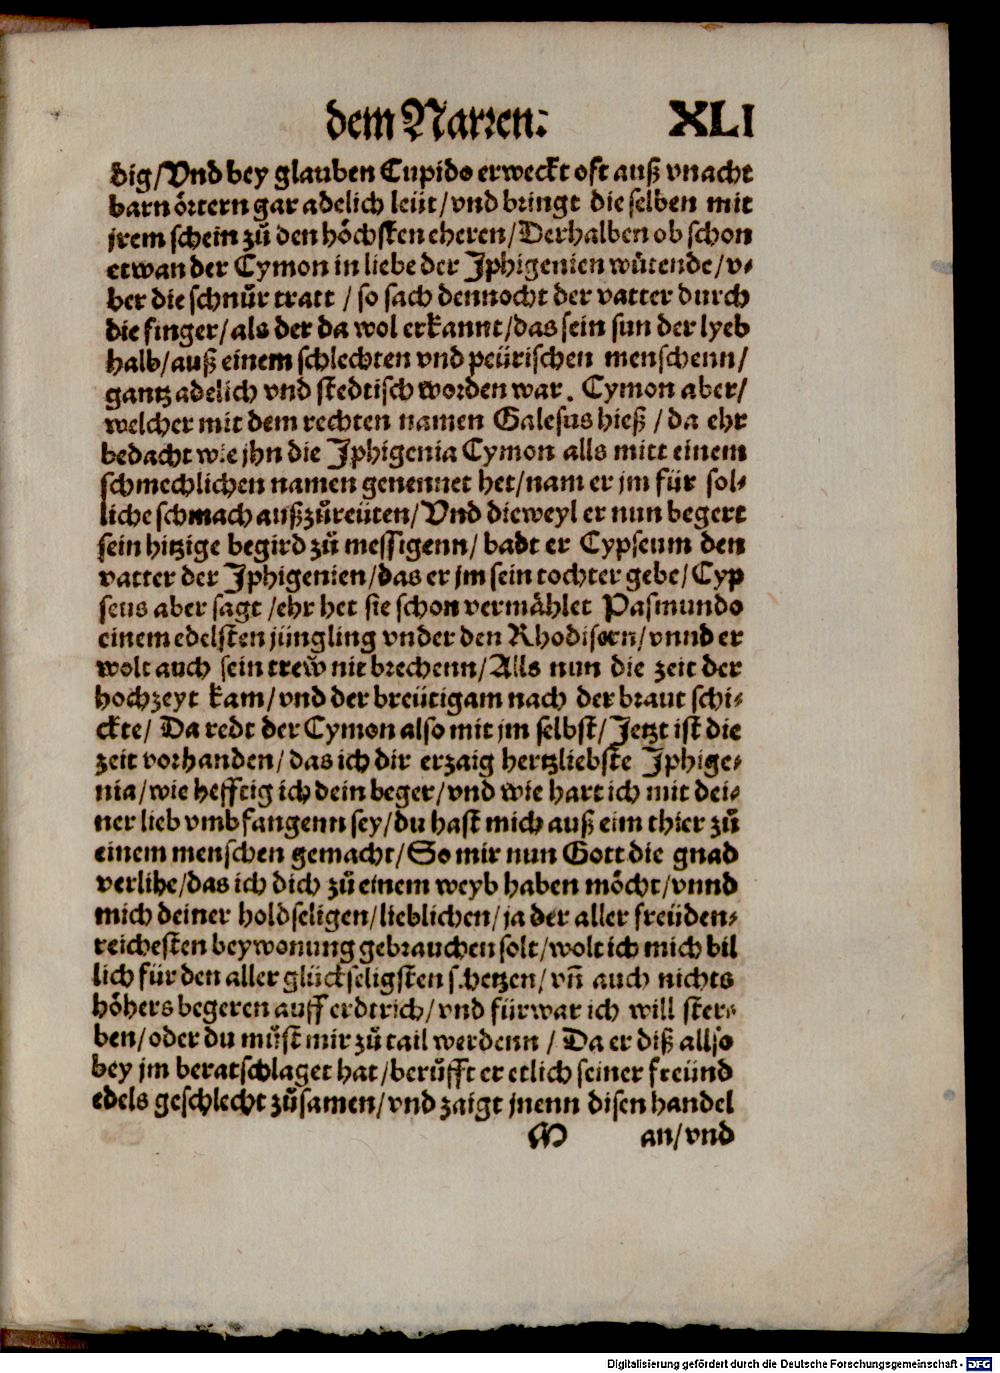 dem Narren: XLI
dig/Vnd bey glauben Cupido erweckt oft auß vnacht
barn örtern gar adelich leüt/vnd bringt die selben mit
jrem schein zů den höchsten eheren/Derhalben ob schon
etwan der Cymon in liebe der Jphigenien wütende/v⸗
ber die schnůr tratt / so sach dennocht der vatter durch
die finger/als der da wol erkannt/das sein sun der lyeb
halb/auß einem schlechten vnd peürischen menschenn/
gantz adelich vnd stedtisch worden war. Cymon aber/
welcher mit dem rechten namen Galesus hieß / da ehr
bedacht wie jhn die Jphigenia Cymon alls mitt einem
schmechlichen namen genennet het/nam er jm für sol⸗
liche schmach außzůreüten/Vnd dieweyl er nun begert
sein hitzige begird zů messigenn/ badt er Cypseum den
vatter der Jphigenien/das er jm sein tochter gebe/Cyp
seus aber sagt /ehr het sie schon vermåhlet Pasmundo
einem edelsten jüngling vnder den Rhodisern/vnnd er
wolt auch sein trew̆ nit brechenn/Alls nun die zeit der
hochzeyt kam/vnd der breütigam nach der braut schi⸗
ckte/ Da redt der Cymon also mit jm selbst/Jetzt ist die
zeit vorhanden/das ich dir erzaig hertzliebste Jphige⸗
nia/wie hefftig ich dein beger/vnd wie hart ich mit dei⸗
ner lieb vmbfangenn sey/du hast mich auß eim thier zů
einem menschen gemacht/So mir nun Gott die gnad
verlihe/das ich dich zů einem weyb haben möcht/vnnd
mich deiner holdseligen/lieblichen/ja der aller freüden⸗
reichesten beywonung gebrauchen solt/wolt ich mich bil
lich für den aller glückseligsten schetzen/vn̄ auch nichts
höhers begeren auff erdtrich/vnd fürwar ich will ster⸗
ben/oder du můst mir zů tail werdenn / Da er diß allso
bey jm beratschlaget hat/berůfft er etlich seiner freünd
edels geschlecht zůsamen/vnd zaigt jnenn disen handel
M an/vnd
Digitalisierung gefördert durch die Deutsche Forschungsgemeinschaft - DFG